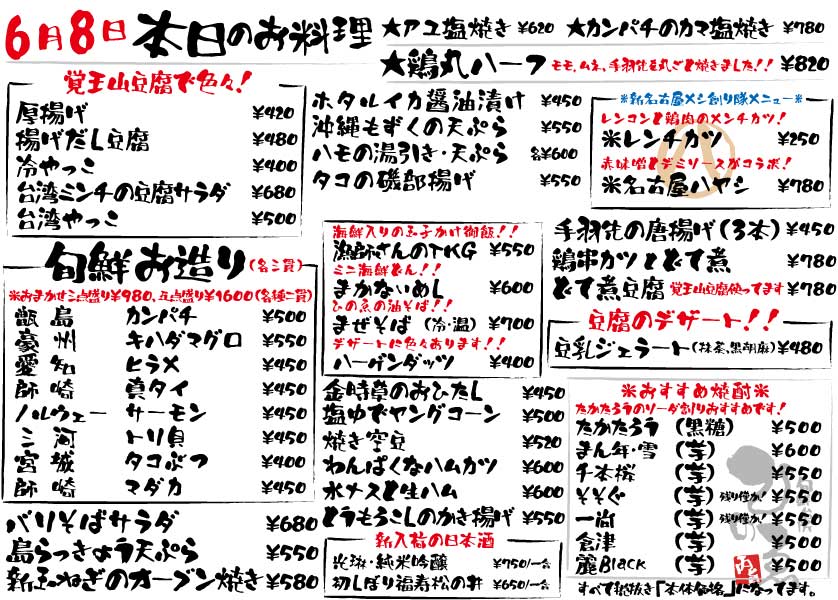 6月8日 本日のお料理
★アユ塩焼き ¥620 ★カンパチのカマ塩焼き ¥780
★鶏丸ハーフ モモ、ムネ、手羽先を丸ごと焼きました!! ¥820
覚王山豆腐で色々!
厚揚げ ¥420
揚げだし豆腐 ¥480
冷やっこ ¥400
台湾ミンチの豆腐サラダ ¥680
台湾やっこ ¥500
ホタルイカ醤油漬け ¥450
沖縄もずくの天ぷら ¥550
ハモの湯引き・天ぷら 各¥600
タコの磯部揚げ ¥550
※新名古屋メシ創り隊メニュー※
レンコンと鶏肉のメンチカツ!
※レンチカツ ¥250
赤味噌とデミソースがコラボ!
※名古屋ハヤシ ¥780
旬鮮お造り (各三貫)
※おまかせ三点盛り¥980、五点盛り¥1600(各種二貫)
甑島 カンパチ ¥500
豪州 キハダマグロ ¥550
愛知 ヒラメ ¥450
師崎 真タイ ¥450
ノルウェー サーモン ¥450
三河 トリ貝 ¥450
宮城 タコぶつ ¥400
師崎 マダカ ¥450
バリそばサラダ ¥680
島らっきょう天ぷら ¥550
新玉ねぎのオーブン焼き ¥580
海鮮入りの玉子かけ御飯!!
漁師さんのTKG ¥550
ミニ海鮮どん!!
まかないめし ¥600
ひの魚の油そば!!
まぜそば (冷・温) ¥700
デザートに色々あります!!
ハーゲンダッツ ¥400
金時草のおひたし ¥450
塩ゆでヤングコーン ¥500
焼き空豆 ¥520
わんぱくなハムカツ ¥600
水ナスと生ハム ¥600
とうもろこしのかき揚げ ¥550
新入荷の日本酒
光琳・純米吟醸 ¥750/一合
初しぼり福寿松の井 ¥650/一合
手羽先の唐揚げ(3本) ¥450
鶏串カツとどて煮 ¥780
どて煮豆腐 覚王山豆腐使ってます ¥780
豆腐のデザート!!
豆乳ジェラート(抹茶、黒胡麻) ¥480
※おすすめ焼酎※
たかたろうのソーダ割りおすすめです!
たかたろう (黒糖) ¥500
まん年・雪 (芋) ¥600
千本桜 (芋) ¥500
そそぐ (芋) 残り僅か! ¥550
一尚 (芋) 残り僅か! ¥550
倉津 (芋) ¥500
麗Black (芋) ¥500
すべて税抜き「本体価格」になってます。